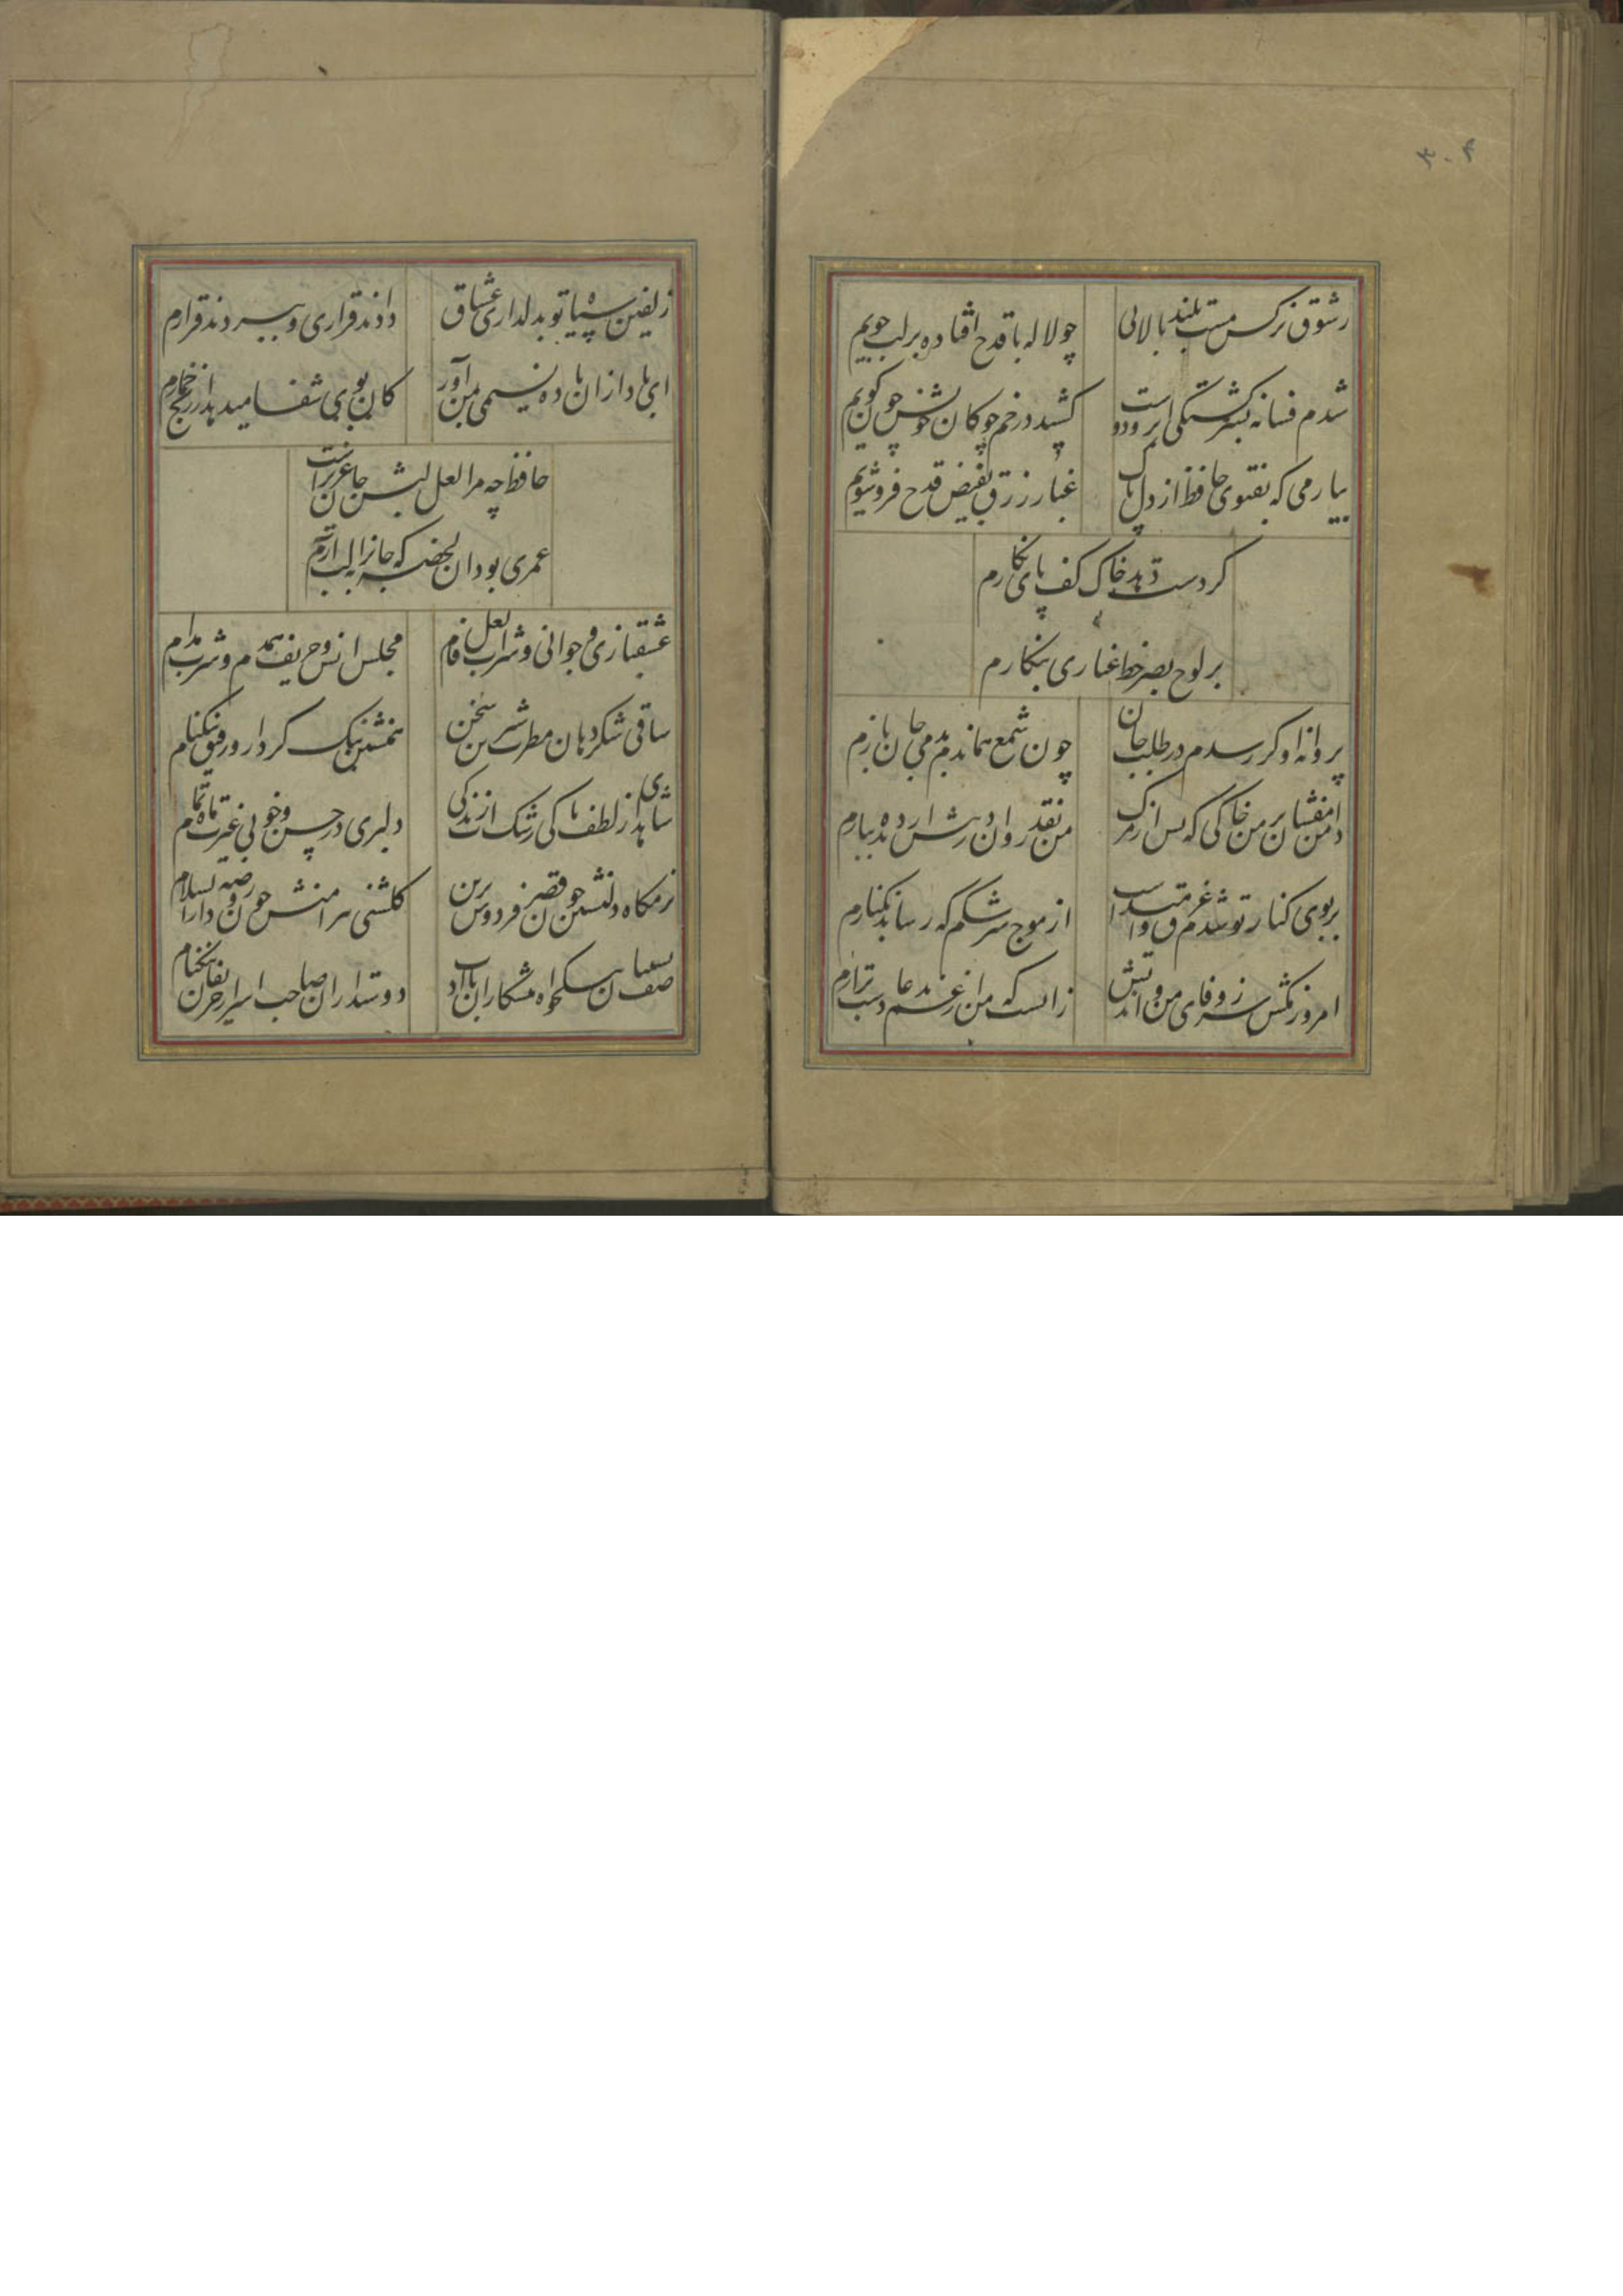 ۳۰۴
زشوق نرکس مست بلند بالایی
چو لاله با قدح افتاده بر لب جویم
شدم فسانه بسرکشتکی که ابروی دوست
کشید در خم چوکان خویش چون کویم
بیار می که بفتوی حافظ از دل پاک
غبار زرق بفیض قدح فرو شویم
کر دست دهد خاک کف پای نکارم
بر لوح بصر خط غباری بنکارم
پروانه او کر رسدم در طلب جان
چون شمع هماندم بدمی جان بسپارم
دامن مفشان از من خاکی که پس از مرک
من نقد روان در رهش از دیده ببارم
بر بوی کنار تو شدم غرق و امیدست
از موج سرشکم که رساند بکنارم
امروز مکش سر ز وفای من و اندیش
زان شب که من از غم بدعا دست برارم
زلفین سیاه تو بدلداری عشاق
دادند قراری و ببردند قرارم
ای باد از ان باده نسیمی بمن آور
کان بوی شفا میدهد از رنج خمارم
حافظ لب لعلش چو مرا جان عزیز است
عمری بود ان لحظه که جانرا بلب ارم
عشقبازی و جوانی و شراب لعل فام
مجلس انس و حریف همدم و شرب مدام
ساقی شکردهان و مطرب شیرین سخن
همنشین نیک کردار و رفیق نیکنام
شاهدی از لطف و پاکی رشک اب زندکی
دلبری در حسن و خوبی غیرت ماه تمام
بزمکاه دلنشین چون قصر فردوس برین
کلشنی پیرامنش چون روضه دارالسلام
صف نشینان نیکخواه و پیشکاران با ادب
دوستداران صاحب اسرار و حریفان نیکنام